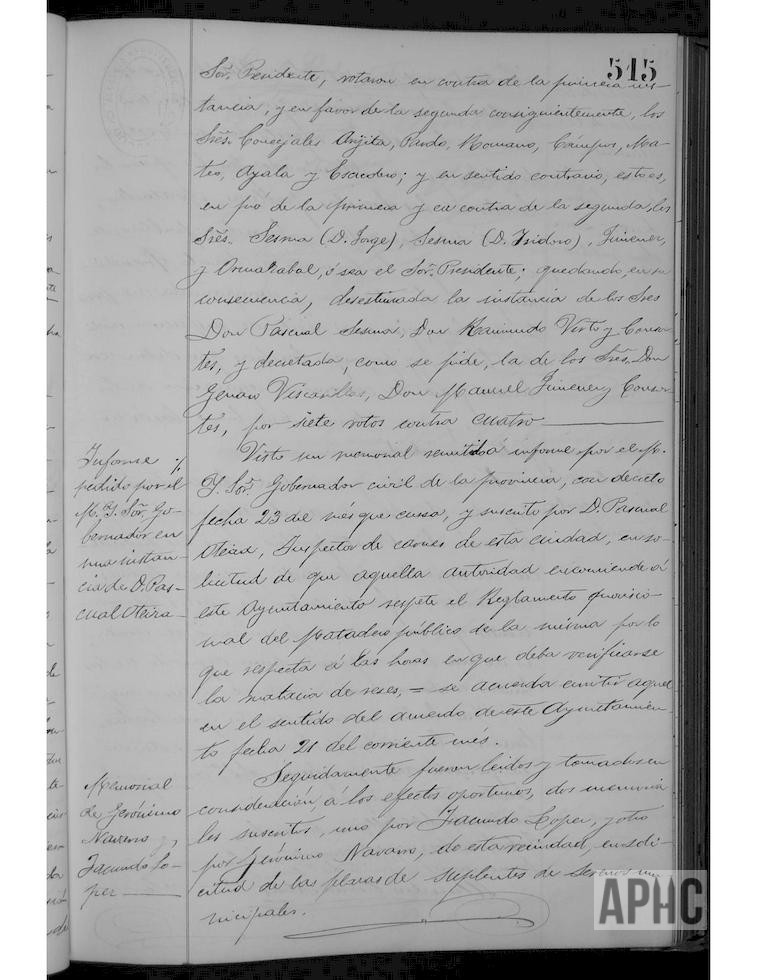 515
Sor. Presidente, votaron en contra de la primera ins-
tancia, y en favor de la segunda consiguientemente, los
Sres. Concejales Anjita, Pardo, Romano, Campos, Ma-
teo, Ayala y Escudero; y en sentido contrario, esto es,
en pró de la primera y en contra de la segunda, los
Sres. Sesma (D. Jorge), Sesma (D. Isidoro), Jimenez,
y Ormazabal, ó sea el Sor. Presidente; quedando, en su
consecuencia, desestimada la instancia de los Sres
Don Pascual Sesma, Don Raimundo Virto y Consor-
tes, y decretada, como se pide, la de los Sres. Don
Genaro Viscasillas, Don Manuel Jimenez y Consor-
tes, por siete votos contra cuatro
Informe
pedido por el
M. Y. Sor. Go-
bernador en
una instan-
cia de D. Pas-
cual Oteiza
Visto un memorial remitido á informe por el M.
Y. Sor. Gobernador civil de la provincia, con decreto
fecha 23 del mes que cursa, y suscrito por D. Pascual
Oteiza, Inspector de carnes de esta ciudad, en so-
licitud de que aquella autoridad encomiende á
este Ayuntamiento respete el Reglamento provisio-
nal del Matadero público de la misma por lo
que respecta á las horas en que deba verificarse
la matacia de reses, = se acuerda emitir aquel
en el sentido del acuerdo de este Ayuntamien-
to fecha 21 del corriente més.
Memorial
de Gerónimo
Navarro y
Facundo Lo-
pez
Seguidamente fueron leidos y tomados en
consideración á los efectos oportunos, dos memoria
les suscritos, uno por Facundo Lopez, y otro
por Gerónimo Navarro, de esta vecindad, en soli-
citud de las plazas de suplentes de serenos mu
nicipales.
APHC